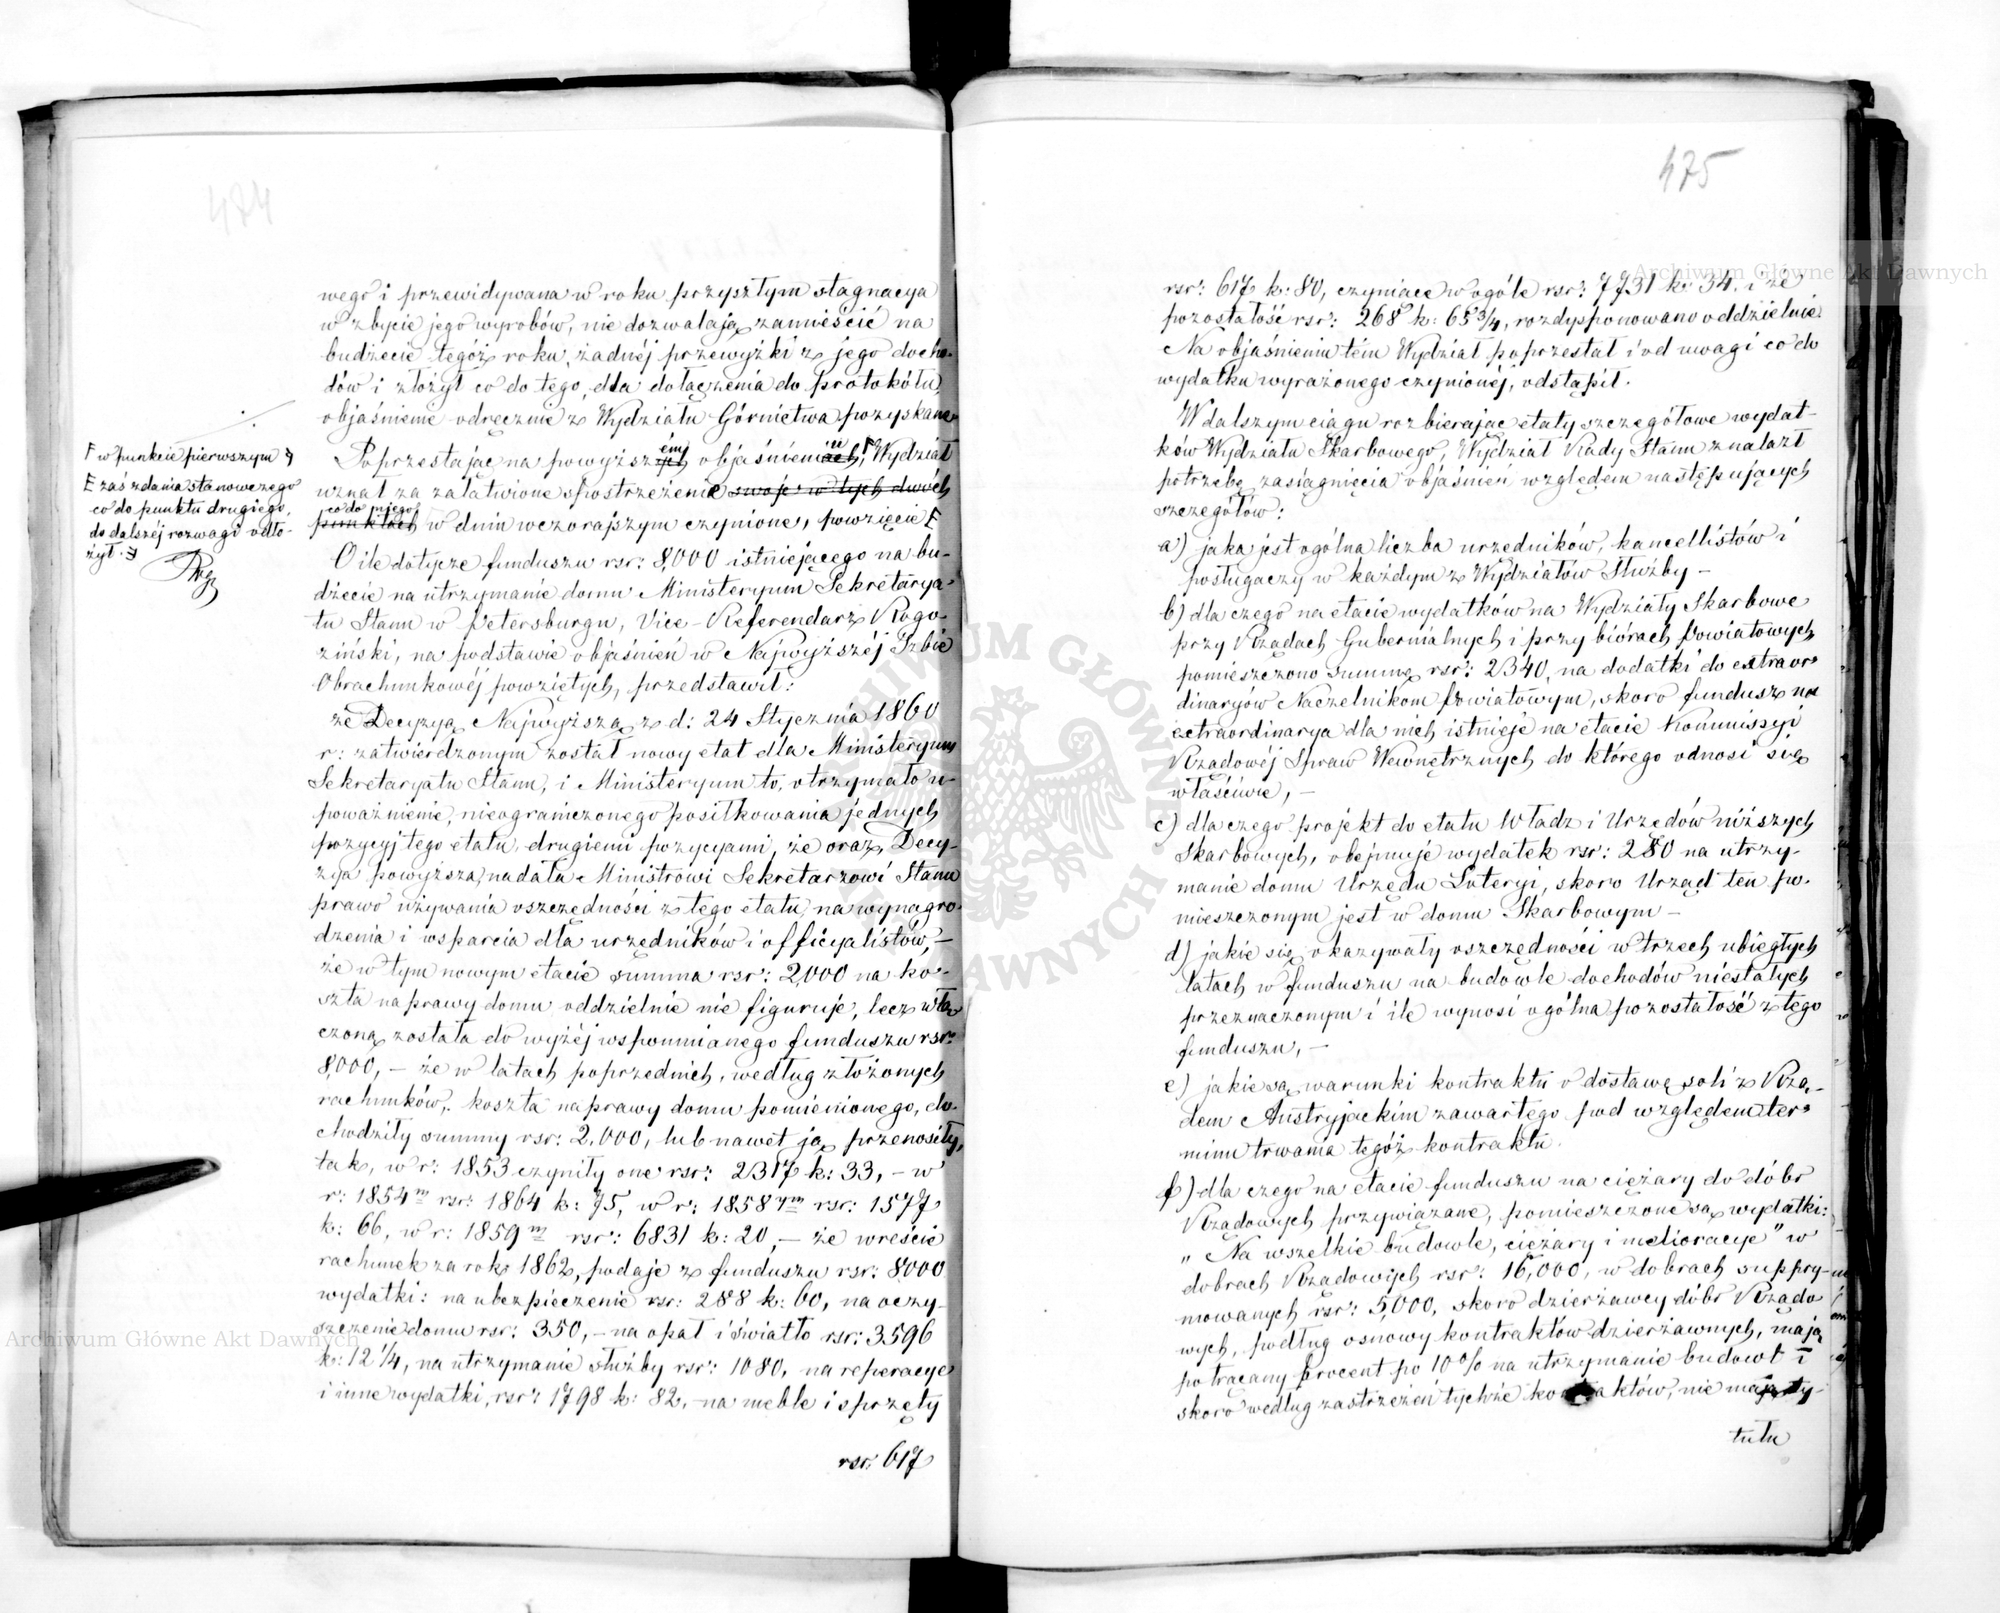 474
wego i przewidywana w roku przyszłym stagnacya
w zbycie jego wyrobów, nie dozwalają zamieścić na
budżecie tegóż roku, żadnéj przewyżki z jego docho-
dów i złożył co do tego, dla dołączenia do protokółu,
objaśnienie odręcznie z Wydziału Górnictwa pozyskane
Poprzestając na powyższém objaśnieniu, Wydział
uznał za załatwione spostrzeżenie swoje w tych dwóch
punktach co do niego w dniu wczorajszym czynione, powzięcie
F w punkcie pierwszym
E zaś zdania stanowczego
co do punktu drugiego,
do dalszéj rozwagi odło-
żył.
O ile dotycze funduszu rsr: 8,000 istniejącego na bu-
dżecie na utrzymanie domu Ministeryum Sekretarya-
tu Stanu w Petersburgu, Vice-Referendarz Rogo-
ziński, na podstawie objaśnień w Najwyższéj Izbie
Obrachunkowéj powziętych, przedstawił:
że Decyzyą Najwyższą z d: 24 Stycznia 1860
r: zatwierdzonym został nowy etat dla Ministeryum
Sekretaryatu Stanu, i Ministeryum to, otrzymało u-
poważnienie, nieograniczonego posiłkowania jednych
pozycyj tego etatu, drugiemi pozycyami, że oraz, Decy-
zya powyższa, nadała Ministrowi Sekretarzowi Stanu
prawo używania oszczędności z tego etatu, na wynagro-
dzenia i wsparcia dla urzędników i officyalistów, —
że w tym nowym etacie summa rsr: 2,000 na ko-
szta naprawy domu oddzielnie nie figuruje, lecz włą-
czoną została do wyżéj wspomnianego funduszu rsr:
8,000, — że w latach poprzednich, według złożonych
rachunków, koszta naprawy domu pomienionego, do-
chodziły summy rsr: 2,000, lub nawet ją przenosiły,
tak, w r: 1853 czyniły one rsr: 2317 k: 33, — w
r: 1854m rsr: 1864 k: 75, w r: 1858ym rsr: 1577
k: 66, w r: 1859m rsr: 6831 k: 20, — że wreście
rachunek za rok 1862, podaje z funduszu rsr: 8000
wydatki: na ubezpieczenie rsr: 288 k: 60, na oczy-
szczenie domu rsr: 350, — na opał i światło rsr: 3596
k: 12 1/4, na utrzymanie służby rsr: 1080, na reperacye
i inne wydatki, rsr: 1798 k: 82, — na meble i sprzęty
rsr: 617
475
rsr: 617 k: 80, czyniące w ogóle rsr: 7731 k: 34. i że
pozostałość rsr: 268 k: 65 3/4, rozdysponowano oddzielnie.
Na objaśnieniu tém Wydział poprzestał i od uwagi co do
wydatku wyrażonego czynionéj, odstąpił.
W dalszym ciągu rozbierając etaty szczegółowe wydat-
ków Wydziału Skarbowego, Wydział Rady Stanu znalazł
potrzebę zasiągnięcia objaśnień względem następujących
szczegółów:
a) jaka jest ogólna liczba urzędników, kancellistów i
posługaczy w każdym z Wydziałów Służby —
b) dla czego na etacie wydatków na Wydziały Skarbowe
przy Rządach Gubernialnych i przy biórach Powiatowych,
pomieszczono summę rsr: 2340, na dodatki do extraor-
dinaryów Naczelnikom Powiatowym, skoro fundusz na
extraordinarya dla nich istnieje na etacie Kommissyi
Rządowéj Spraw Wewnętrznych do którego odnosi się
właściwie, —
c) dla czego projekt do etatu Władz i Urzędów niższych
Skarbowych, obejmuje wydatek rsr: 280 na utrzy-
manie domu Urzędu Loteryi, skoro Urząd ten po-
mieszczonym jest w domu Skarbowym —
d) jakie się okazywały oszczędności w trzech ubiegłych
latach w funduszu na budowle dochodów niestałych
przeznaczonym i ile wynosi ogólna pozostałość z tego
funduszu, —
e) jakie są warunki kontraktu o dostawę soli z Rzą-
dem Austryjackim zawartego pod względem ter-
minu trwania tegóż kontraktu.
f) dla czego na etacie funduszu na ciężary do dóbr
Rządowych przywiązane, pomieszczone są wydatki:
„Na wszelkie budowle, ciężary i melioracye" w
dobrach Rządowych rsr: 16,000, w dobrach suppry-
mowanych rsr: 5,000, skoro dzierżawcy dóbr Rządo
wych, podług osnowy kontraktów dzierżawnych, mają
potrącany procent po 10% na utrzymanie budowl i
skoro według zastrzeżeń tychże kontraktów, nie mają ty-
tułu
Archiwum Główne Akt Dawnych
Archiwum Główne Akt Dawnych
ARCHIWUM GŁÓWNE AKT DAWNYCH